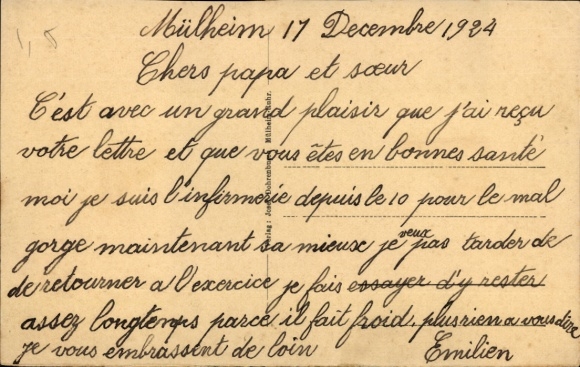 Mülheim 17 Decembre 1924
Chers papa et sœur
C'est avec un grand plaisir que j'ai reçu
votre lettre et que vous êtes en bonnes santé
moi je suis l'infirmerie depuis le 10 pour le mal
gorge maintenant sa mieux je veux pas tarder de
de retourner a l'exercice je fais essayer d'y rester
assez longtemps parce il fait froid, plus rien a vous dire
je vous embrassent de loin Emilien